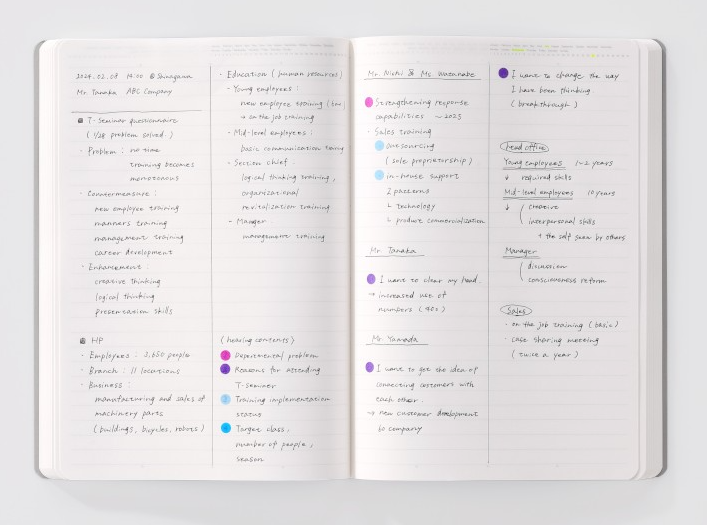 2024.02.08 14:00 @ Shinagawa
Mr. Tanaka ABC Company
T-Seminar questionnaire
( 1/28 problem solved. )
・Problem : no time
training becomes
monotonous
・Countermeasure :
new employee training
manners training
management training
career development
・Enhancement :
creative thinking
logical thinking
presentation skills
HP
・Employees : 3,650 people
・Branch : 11 locations
・Business :
manufacturing and sales of
machinery parts
( buildings, bicycles, robots )
・Education ( human resources )
- Young employees :
new employee training
→ on the job training
- Mid-level employees :
basic communication
- Section chief :
logical thinking training ,
organizational
revitalization training
- Manager
management training
( hearing contents )
Departmental problem
Reasons for attending
T-seminar
Training implementation
status
Target class ,
number of people ,
season
Mr. Nishi & Ms. Watanabe
Strengthening response
capabilities ~ 2025
Sales training
Outsourcing
( sole proprietorship )
in-house support
2 patterns
└ technology
└ product commercialization
Mr. Tanaka
I want to clear my head.
→ increased use of
numbers
Mr. Yamada
I want to get the idea of
connecting customers with
each other.
→ new customer development
by company
I want to change the way
I have been thinking
( breakthrough )
Head office
Young employees 1-2 years
↓ required skills
Mid-level employees 10 years
↓ creative
interpersonal skills
+ the self seen by others
Manager
discussion
consciousness reform
Sales
・on the job training ( basic )
・case sharing meeting
( twice a year )